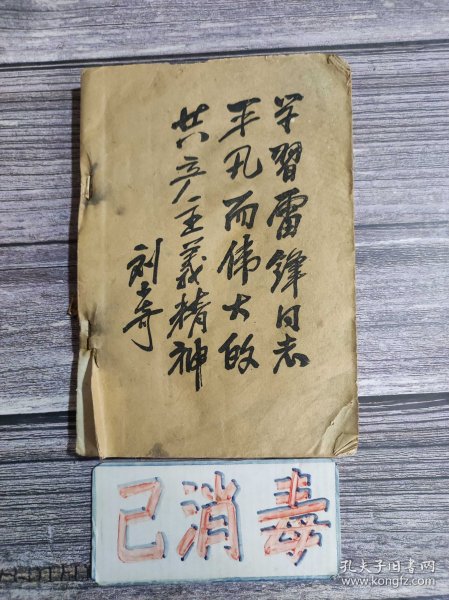 学習雷锋同志
平凡而偉大的
共产主義精神
刘少奇
已消毒
孔夫子旧书网
www.kongfz.com